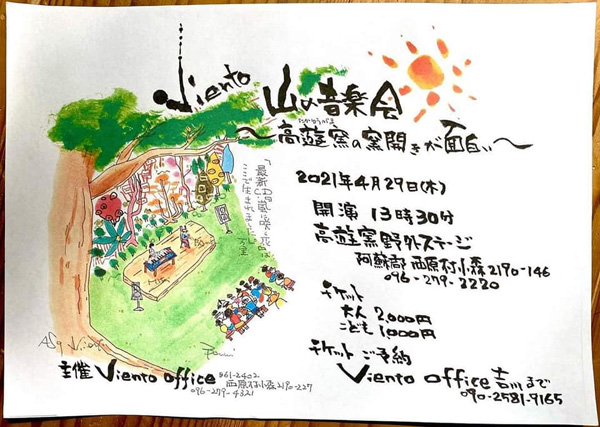 Viento 山の音楽会
たかゆうがま
～高遊窯の窯開きが面白い～
2021年4月29日(木)
開演 13時30分
高遊窯野外ステージ
阿蘇郡西原村小森2190-146
096-279-3220
チケット
大人 2,000円
こども 1,000円
チケットご予約
Viento office 吉川まで
090-2581-9165
主催 Viento office
861-2402
西原村小森2190-227
096-279-4321